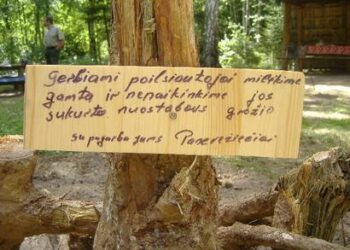 Gerbiami poilsiautojai mylėkime
gamtą ir nenaikinkime jos
sukurto nuostabaus grožio
Su pagarba Jums Panerežiečiai